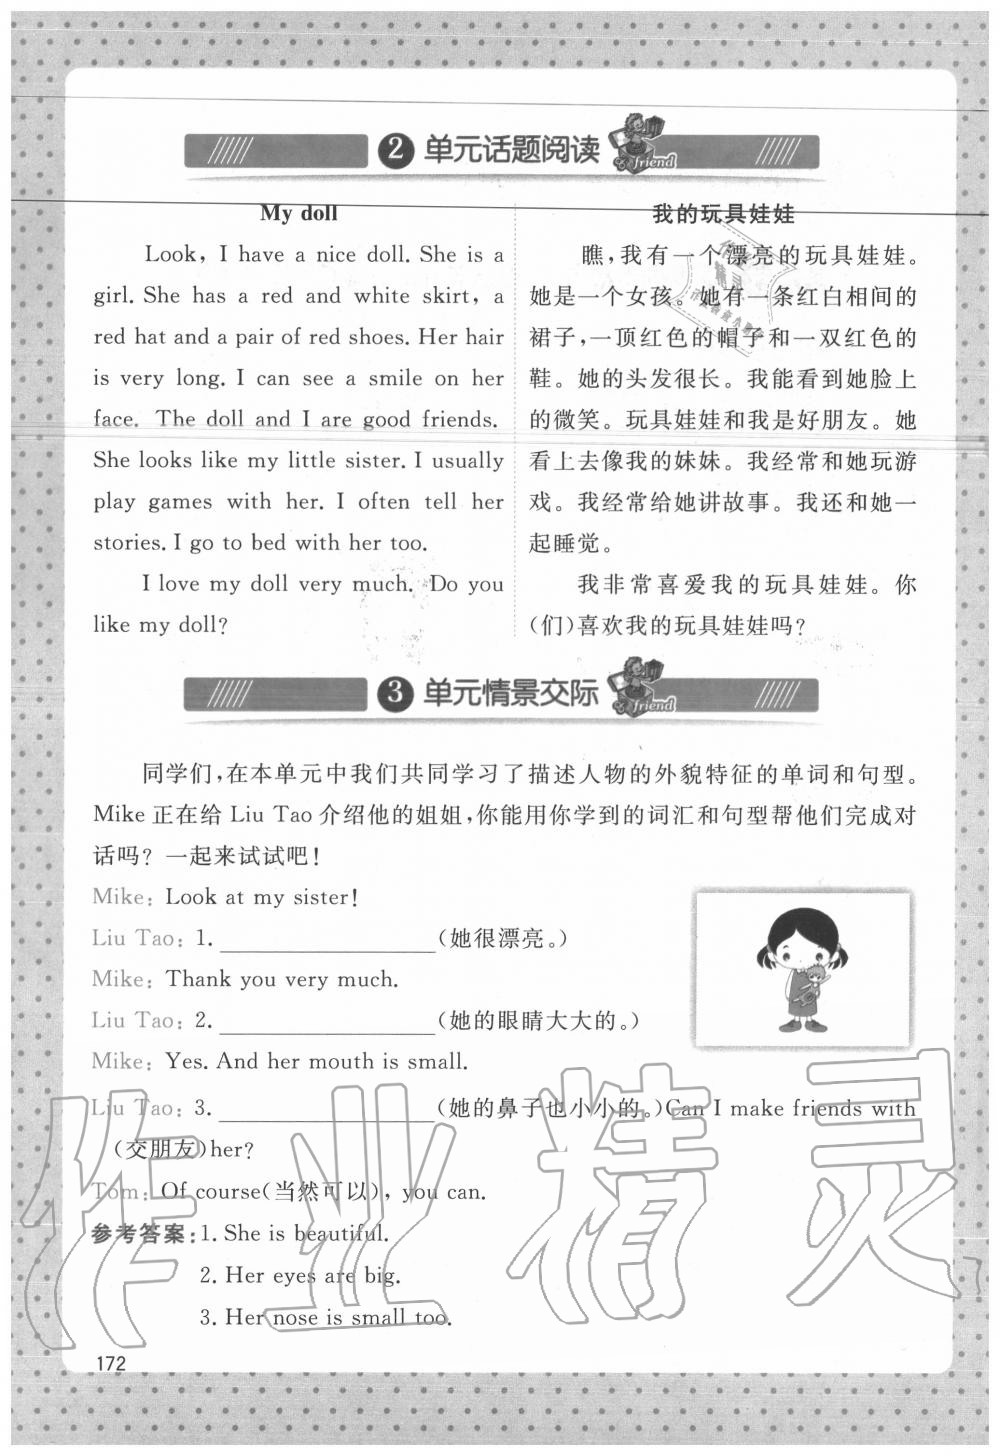 2 单元话题阅读
friend
My doll
Look, I have a nice doll. She is a
girl. She has a red and white skirt, a
red hat and a pair of red shoes. Her hair
is very long. I can see a smile on her
face. The doll and I are good friends.
She looks like my little sister. I usually
play games with her. I often tell her
stories. I go to bed with her too.
I love my doll very much. Do you
like my doll?
我的玩具娃娃
瞧,我有一个漂亮的玩具娃娃。
她是一个女孩。她有一条红白相间的
裙子,一顶红色的帽子和一双红色的
鞋。她的头发很长。我能看到她脸上
的微笑。玩具娃娃和我是好朋友。她
看上去像我的妹妹。我经常和她玩游
戏。我经常给她讲故事。我还和她一
起睡觉。
我非常喜爱我的玩具娃娃。你
(们)喜欢我的玩具娃娃吗?
3 单元情景交际
friend
同学们,在本单元中我们共同学习了描述人物的外貌特征的单词和句型。
Mike 正在给 Liu Tao 介绍他的姐姐,你能用你学到的词汇和句型帮他们完成对
话吗? 一起来试试吧!
Mike: Look at my sister!
Liu Tao: 1. (她很漂亮。)
Mike: Thank you very much.
Liu Tao: 2. (她的眼睛大大的。)
Mike: Yes. And her mouth is small.
Liu Tao: 3. (她的鼻子也小小的。)Can I make friends with
(交朋友)her?
Tom: Of course(当然可以), you can.
参考答案:1. She is beautiful.
2. Her eyes are big.
3. Her nose is small too.
作业精灵
172